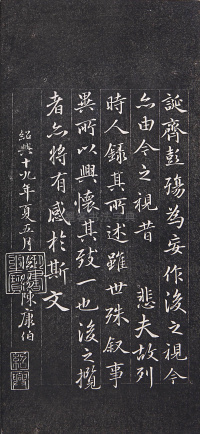 誕齊彭殤為妄作後之視今
亦由今之視昔　悲夫故列
時人錄其所述雖世殊叙事
異所以興懷其致一也後之攬
者亦將有感於斯文
紹興十九年夏五月
陳康伯